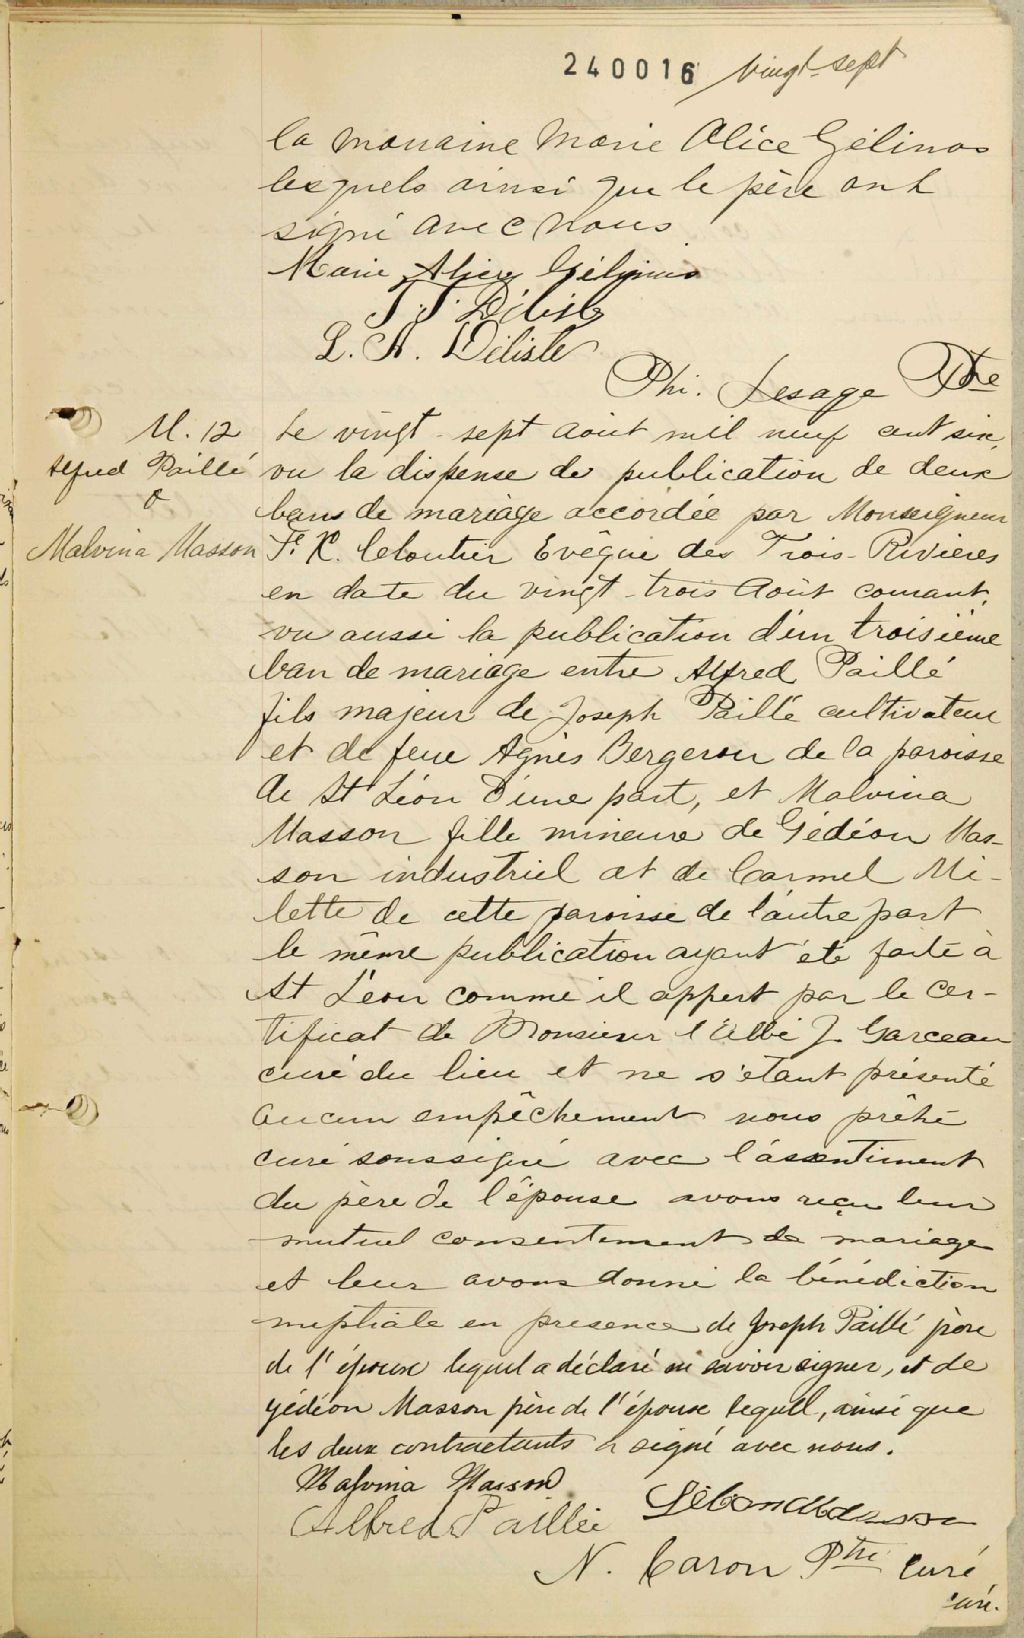 240016 vingt-sept
la marraine Marie Alice Gélinas
lesquels ainsi que le père ont
signé avec nous
Marie Alice Gélinas
J. T. Délisle
L. A. Délisle
Phi. Lesage Ptre
M. 12
Alfred Paillé
&
Malvina Masson
Le vingt-sept aout mil neuf cent six,
vu la dispense de publication de deux
bans de mariage accordée par Monseigneur
F. X. Cloutier Evêque des Trois-Rivières
en date du vingt-trois Août courant,
vu aussi la publication d'un troisième
ban de mariage entre Alfred Paillé
fils majeur de Joseph Paillé cultivateur
et de feue Agnès Bergeron de la paroisse
de St Léon d'une part, et Malvina
Masson fille mineure de Gédéon Mas-
son industriel et de Carmel Mi-
lette de cette paroisse de l'autre part
le même publication ayant été faite à
St Léon comme il appert par le cer-
tificat de Monsieur l'Abbé J. Garceau
curé du lieu et ne s'étant présenté
aucun empêchement nous prêtre
curé soussigné avec l'assentiment
du père de l'épouse avons reçu leur
mutuel consentement de mariage
et leur avons donné la bénédiction
nuptiale en presence de Joseph Paillé père
de l'époux lequel a déclaré ne savoir signer, et de
Gédéon Masson père de l'épouse lequel, ainsi que
les deux contractants a signé avec nous.
Malvina Masson
Alfred Paillée Gédéon Masson
N. Caron Ptre Curé
curé.